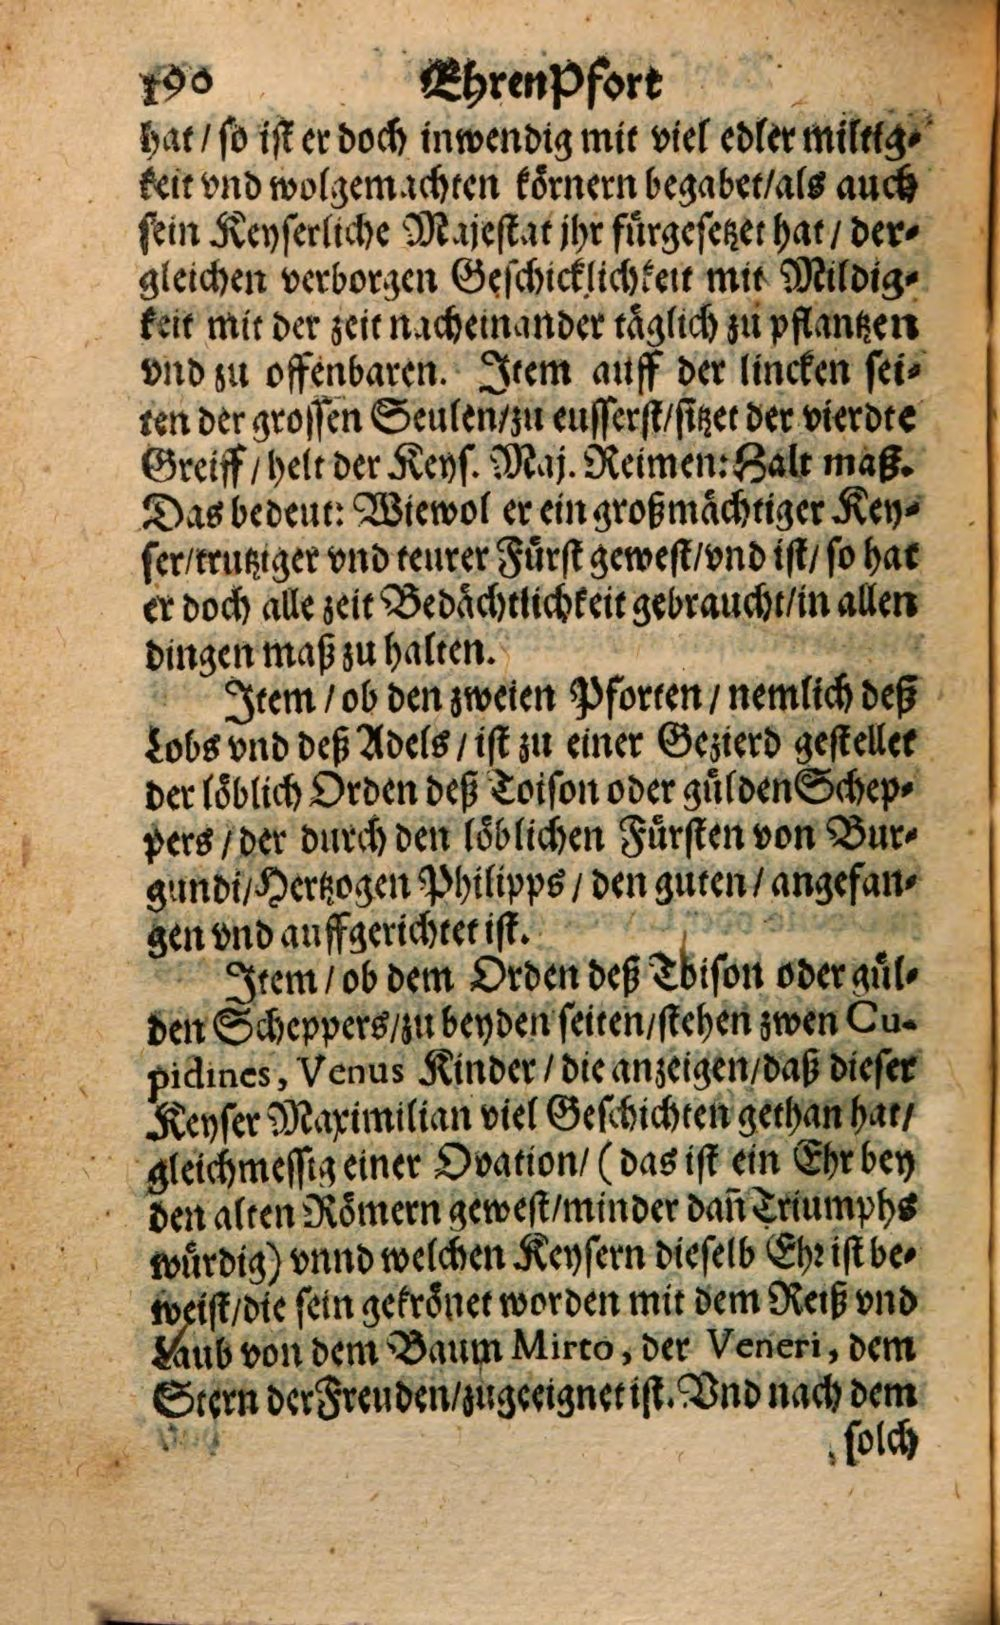 190 EhrenPfort
hat / so ist er doch inwendig mit viel edler miltig-
keit vnd wolgemachten körnern begabet/als auch
sein Keyserliche Majestat jhr fürgesetzet hat / der-
gleichen verborgen Geschicklichkeit mit Mildig-
keit mit der zeit nacheinander täglich zu pflantzen
vnd zu offenbaren. Item auff der lincken sei-
ten der grossen Seulen/zu eusserst/sitzet der vierdte
Greiff / helt der Keys. Maj. Reimen: Halt maß.
Das bedeut: Wiewol er ein großmächtiger Key-
ser/trutziger vnd teurer Fürst gewest/vnd ist/ so hat
er doch alle zeit Bedächtlichkeit gebraucht/in allen
dingen maß zu halten.
Item / ob den zweien Pforten / nemlich deß
Lobs vnd deß Adels / ist zu einer Gezierd gestellet
der löblich Orden deß Toison oder gülden Schep-
pers / der durch den löblichen Fürsten von Bur-
gundi/Hertzogen Philipps / den guten / angefan-
gen vnd auffgerichtet ist.
Item / ob dem Orden deß Toison oder gül-
den Scheppers/zu beyden seiten/stehen zwen Cu-
pidines, Venus Kinder / die anzeigen/daß dieser
Keyser Maximilian viel Geschichten gethan hat/
gleichmessig einer Ovation/ (das ist ein Ehr bey
den alten Römern gewest/minder dañ Triumphs
würdig) vnnd welchen Keysern dieselb Ehr ist be-
weist/die sein gekrönet worden mit dem Reiß vnd
Laub von dem Baum Mirto, der Veneri, dem
Stern der Freuden/zugeeignet ist. Vnd nach dem
solch